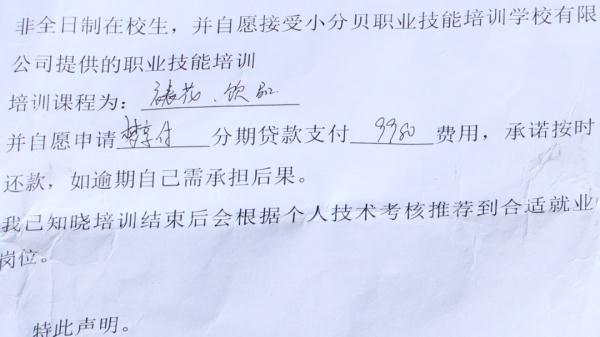 非全日制在校生，并自愿接受小分贝职业技能培训学校有限
公司提供的职业技能培训
培训课程为：裱花、饮品
并自愿申请梦享付分期贷款支付 9980 费用，承诺按时
还款，如逾期自己需承担后果。
我已知晓培训结束后会根据个人技术考核推荐到合适就业
岗位。
特此声明。